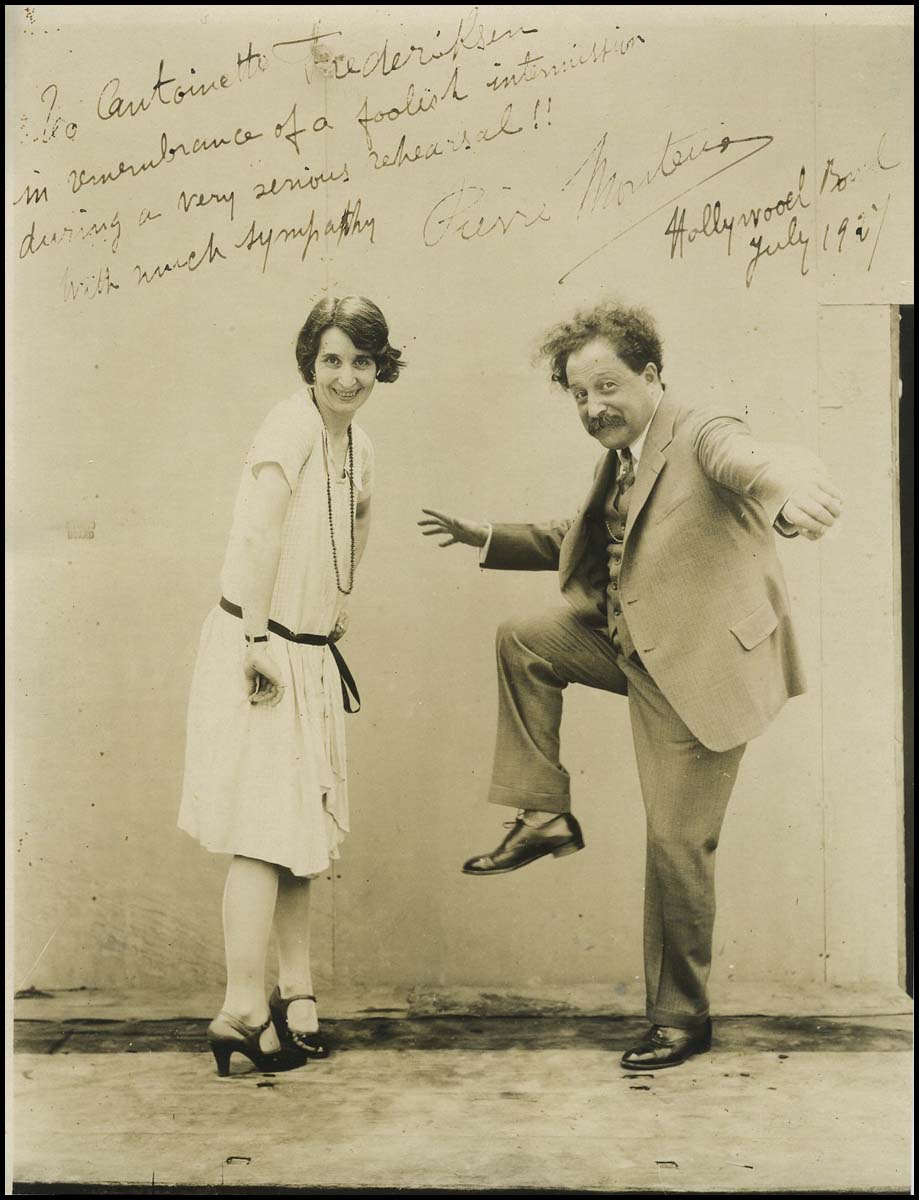 To Antoinette Frederiksen
in remembrance of a foolish intermission
during a very serious rehearsal!!
With much sympathy
Pierre Monteux
Hollywood Bowl
July 1927
BOARD